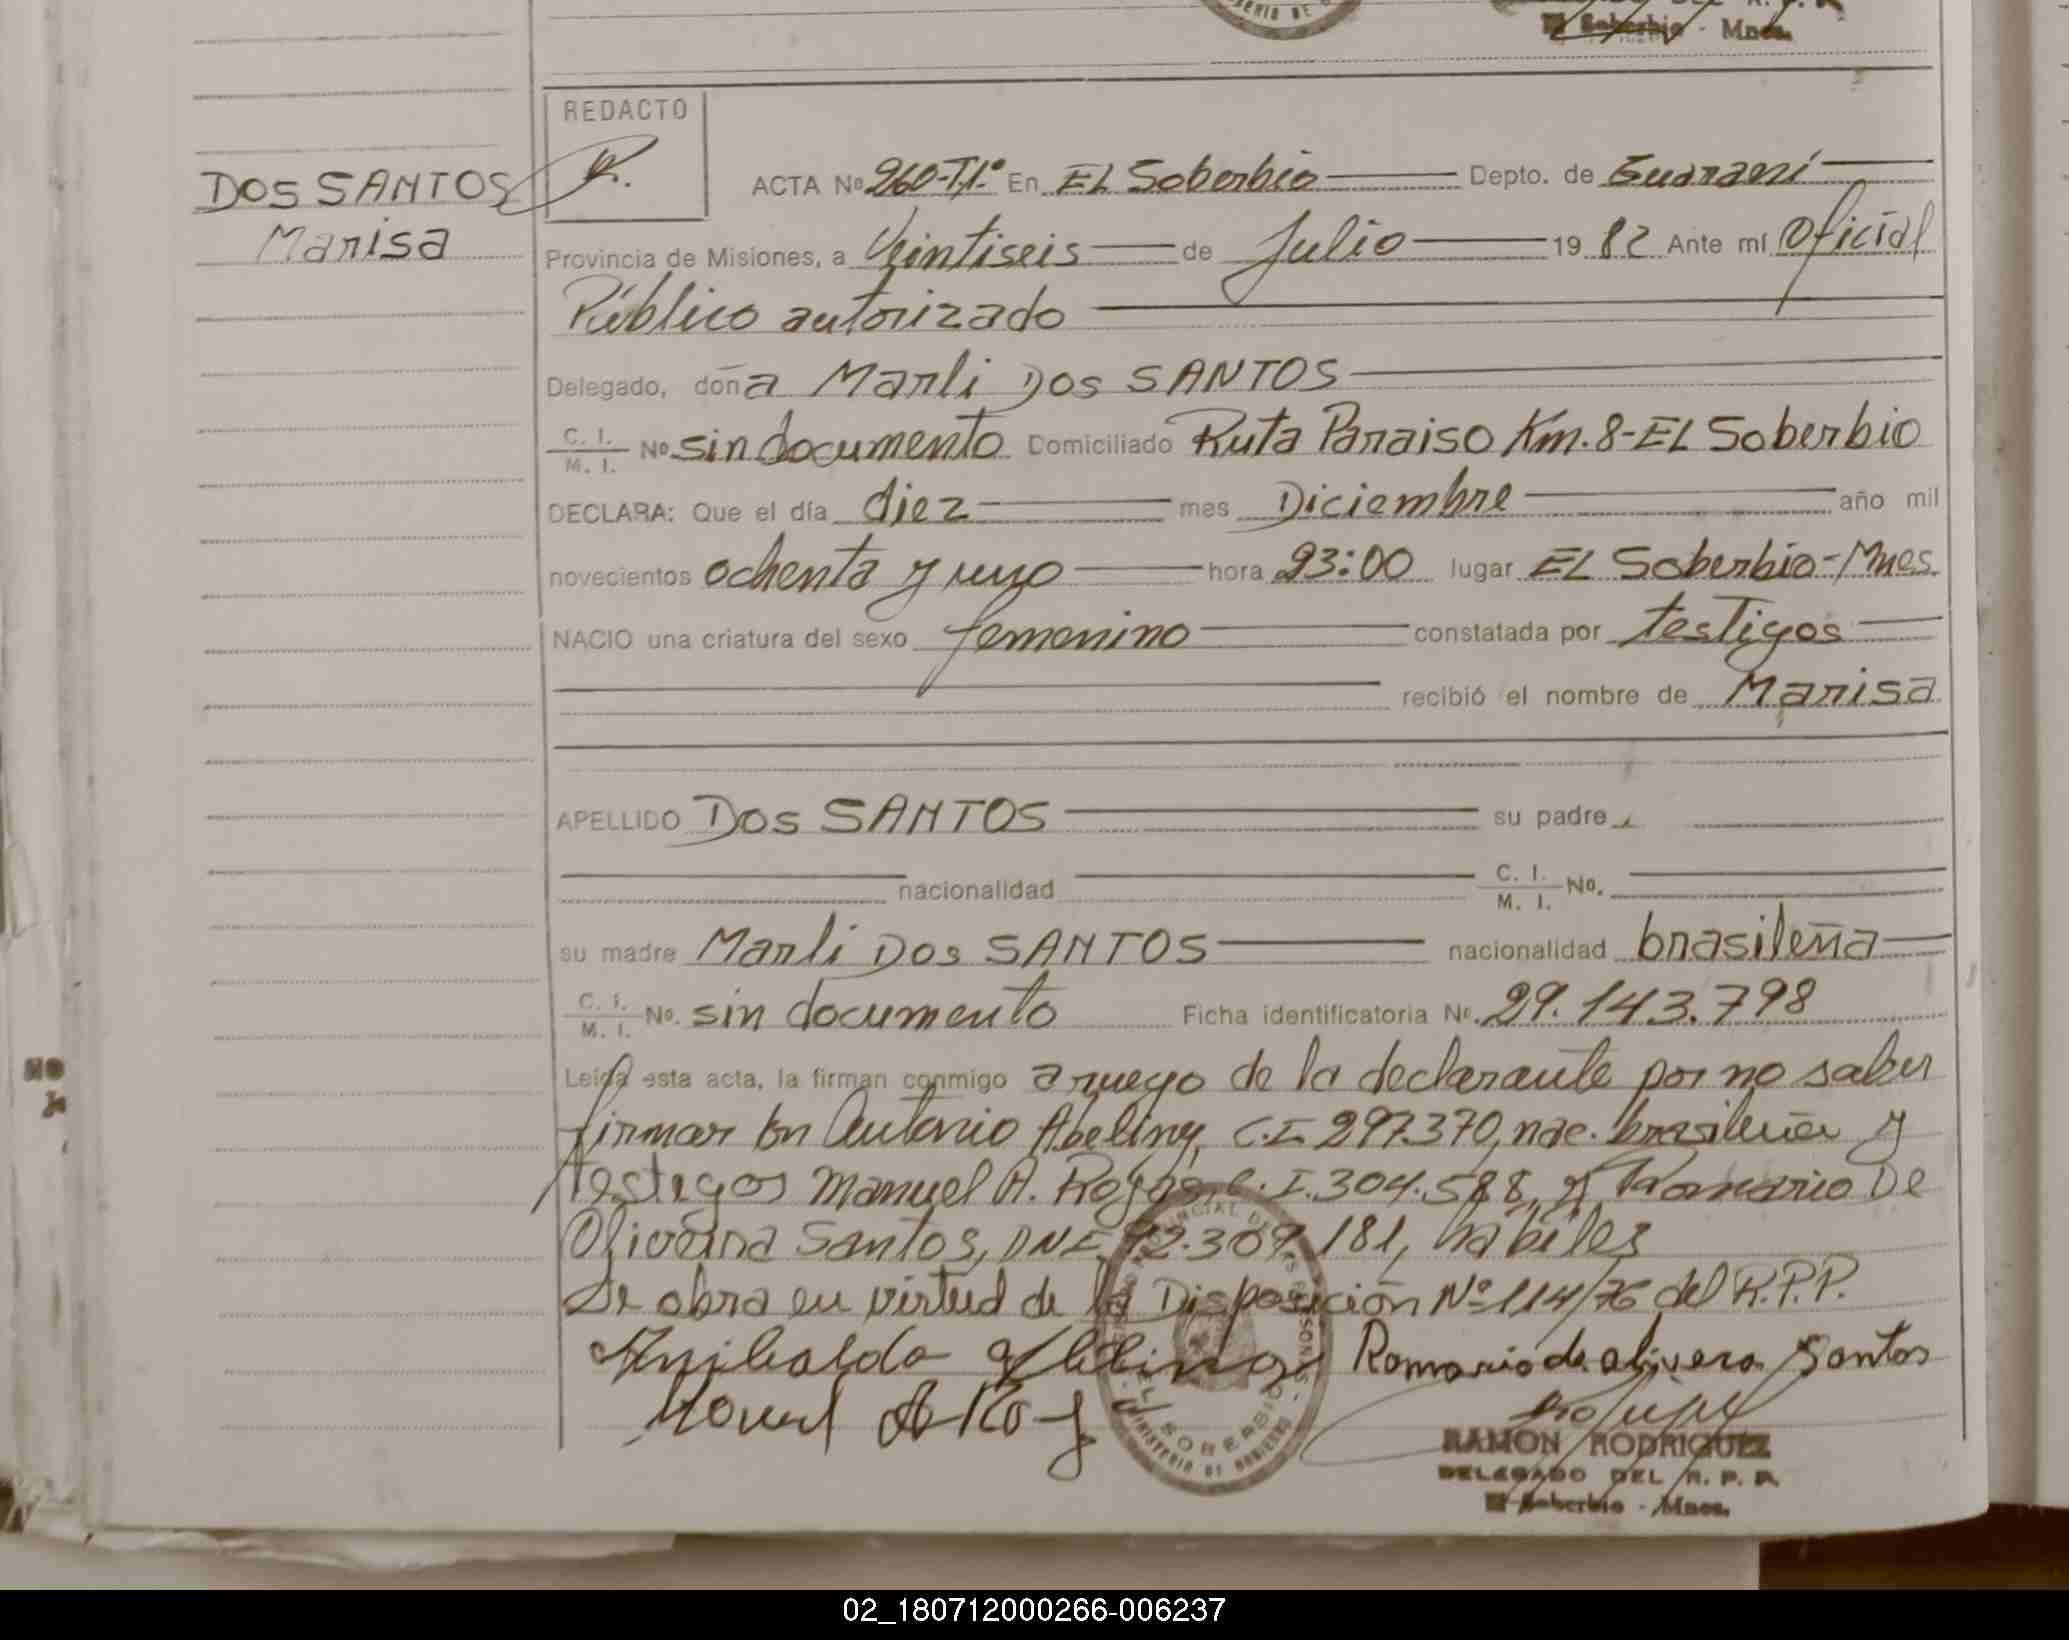 El Soberbio - Mnes.
REDACTO
DOS SANTOS
Marisa
ACTA No 260-T,1º En EL Soberbio Depto. de Guaraní
Provincia de Misiones, a Veintiseis de Julio 19 82 Ante mí Oficial
Público autorizado
Delegado, doña Marli Dos SANTOS
C. I. / M. I. No sin documento Domiciliado Ruta Paraiso Km. 8-EL Soberbio
DECLARA: Que el día diez mes Diciembre año mil
novecientos ochenta y uno hora 23:00 lugar EL Soberbio-Mnes.
NACIO una criatura del sexo femenino constatada por testigos
recibió el nombre de Marisa
APELLIDO Dos SANTOS su padre
nacionalidad C. I. / M. I. No.
su madre Marli Dos SANTOS nacionalidad brasileña
C. I. / M. I. No. sin documento Ficha identificatoria No. 29.143.798
Leída esta acta, la firman conmigo a ruego de la declarante por no saber
firmar Antonio C.I. 297.370, nac. brasileña y
testigos Manuel A. Rojas, C.I. 304.588, y Romario De
Oliveira Santos, DNE, 92.309.181, hábiles
Se obra en virtud de la Disposición Nº 114/76 del R.P.P.
Romario de olivera Santos
EL SOBERBIO
MINISTERIO DE GOBIERNO
RAMON RODRIGUEZ
DELEGADO DEL R. P. P.
El Soberbio - Mnes.
02_180712000266-006237